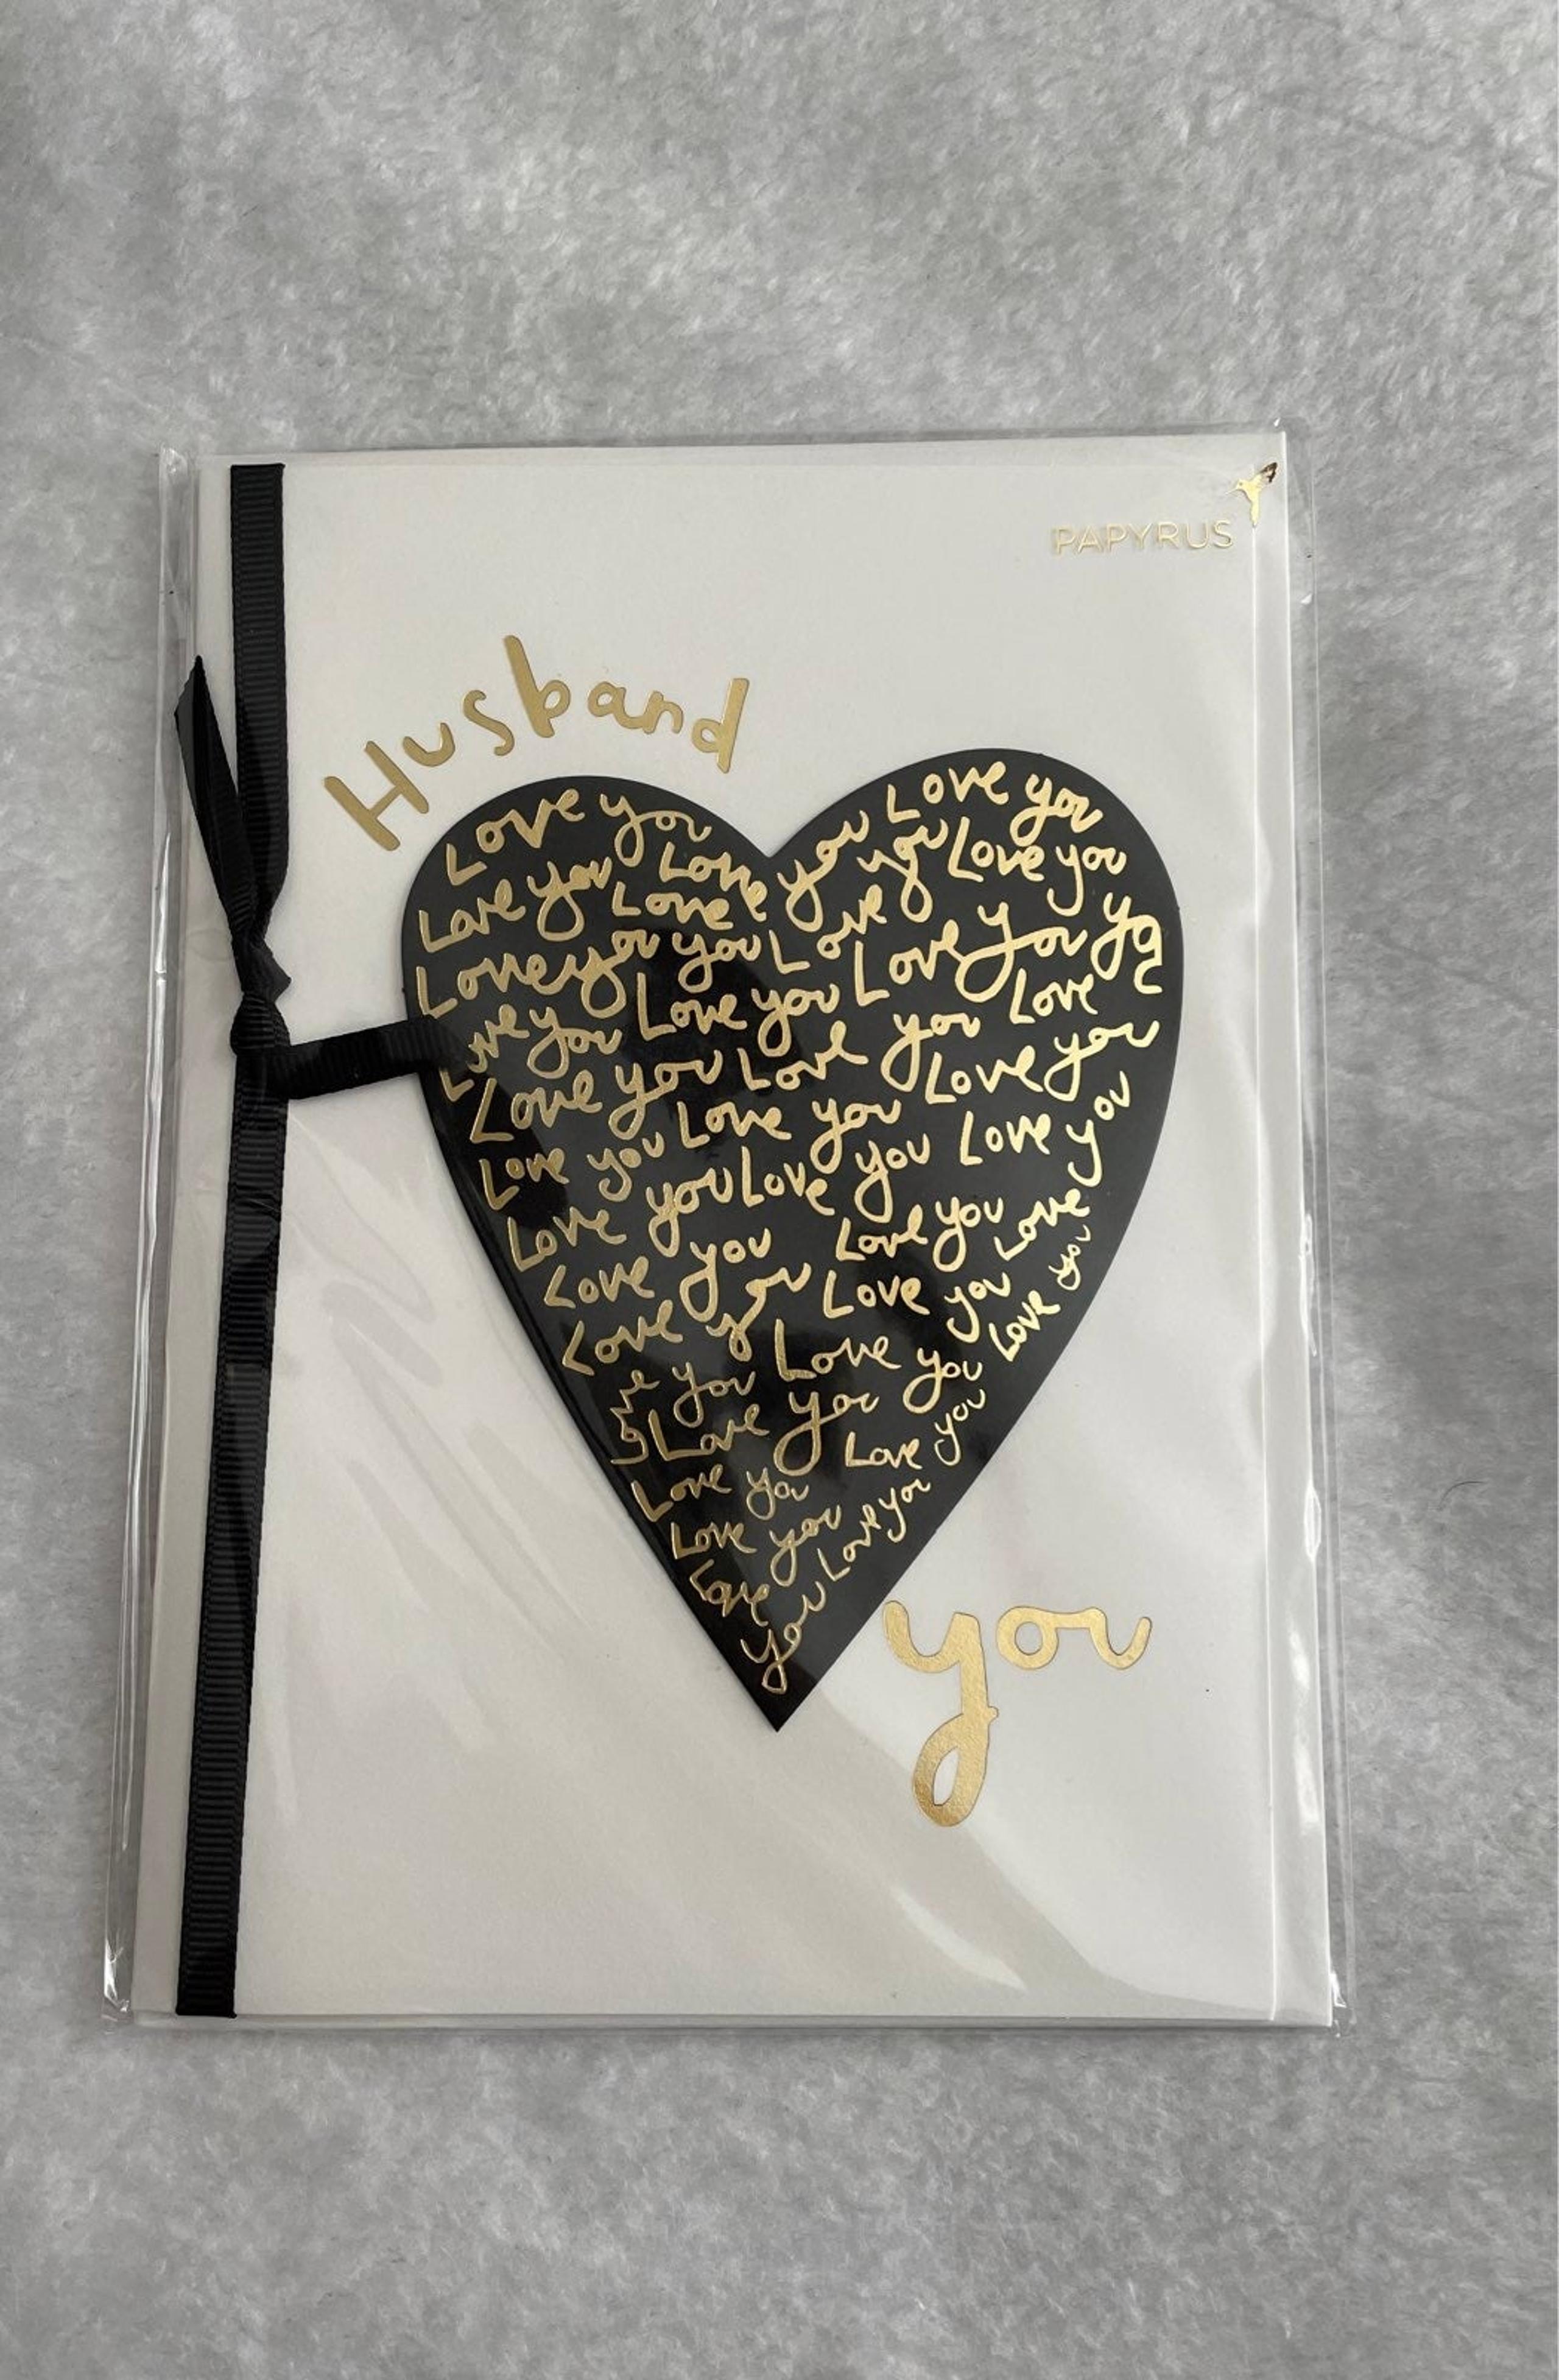 PAPYRUS
Husband
Love you Love you Love you
Love you Love you Love you
Love you you Love Love you you
Love you Love you Love
Love you Love you Love you
Love you Love you Love you
Love you Love you
Love you Love you Love
Love you Love you Love you
you Love you
Love you Love you
Love you Love you
Love you
Love
you
you